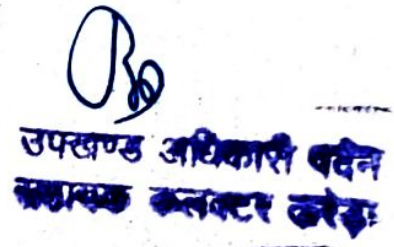 उपखण्ड अधिकारी पदेन
सहायक कलक्टर